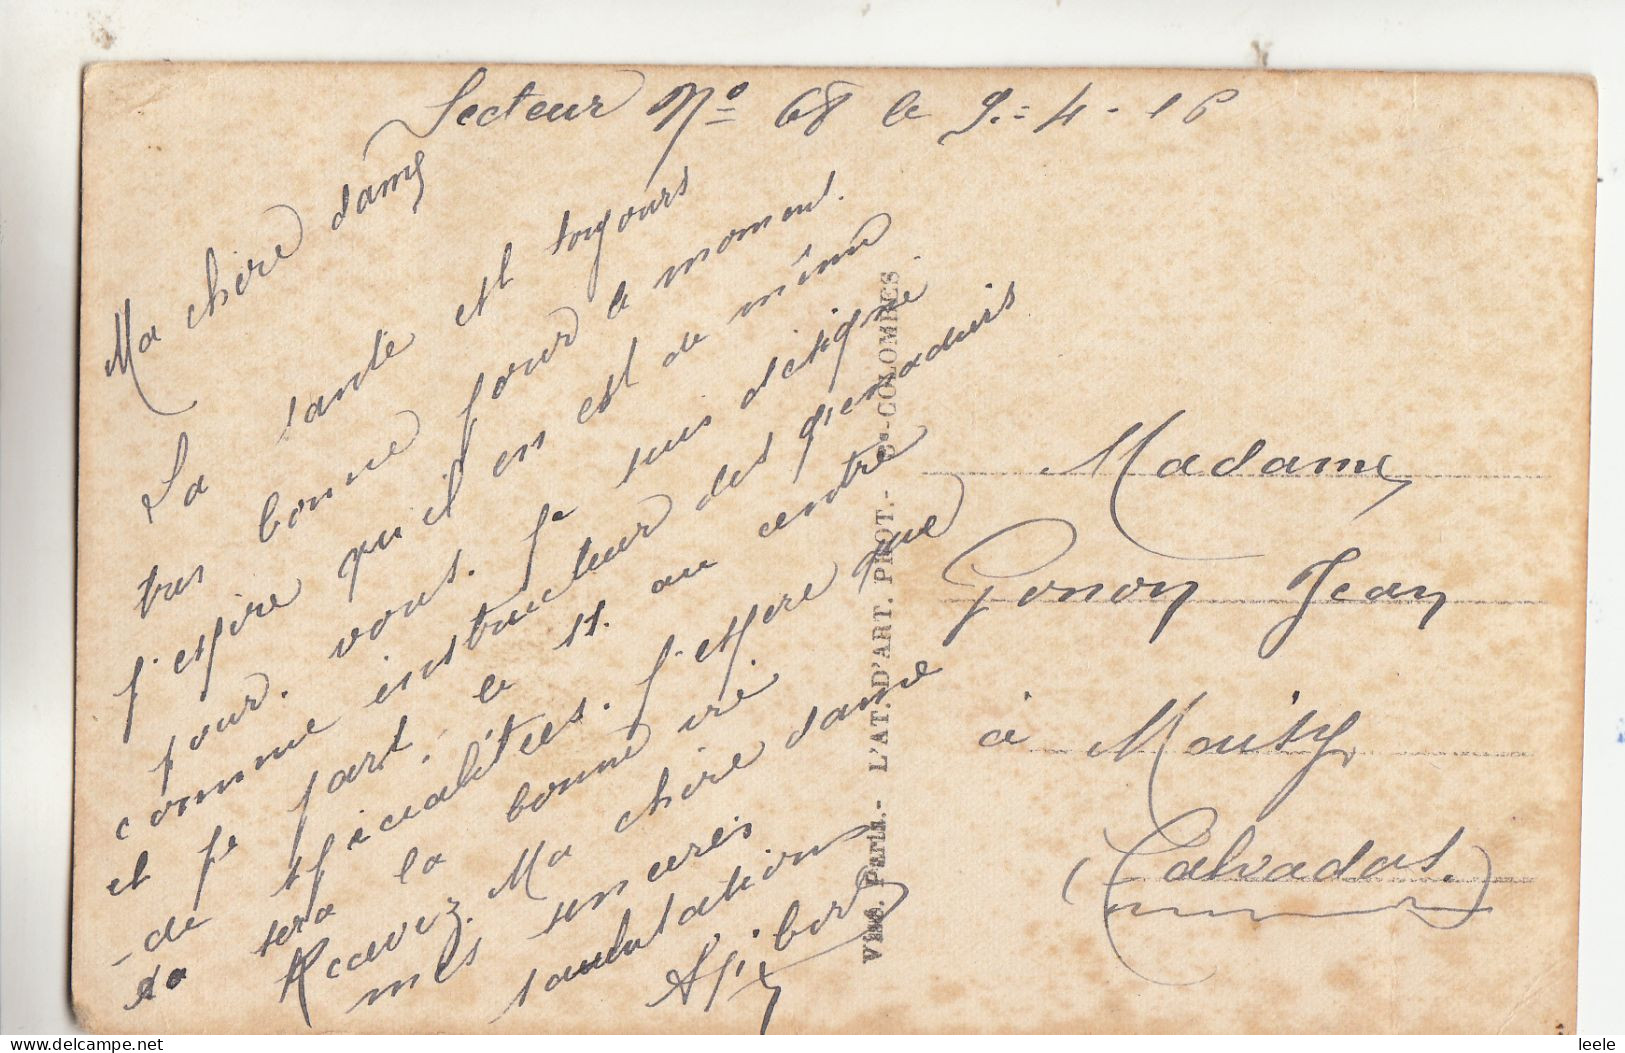 Secteur No 68 le 9-4-16
Ma chère dame
La santé est toujours
tres bonne pour le moment.
j'espère qu'il en est de même
pour vous. Je suis désigné
comme instructeur des grenadiers
et je part, le 11 au centre
de spécialitées. J'espère que
sa sera la bonne vie.
Recevez Ma chère dame
mes sincères
salutations
Madame
Gonon Jean
à Maisy
(Calvados.)
Visé. Paris.- L'AT. D'ART. PHOT.- Bs-COLOMBES.
www.delcampe.net
leele